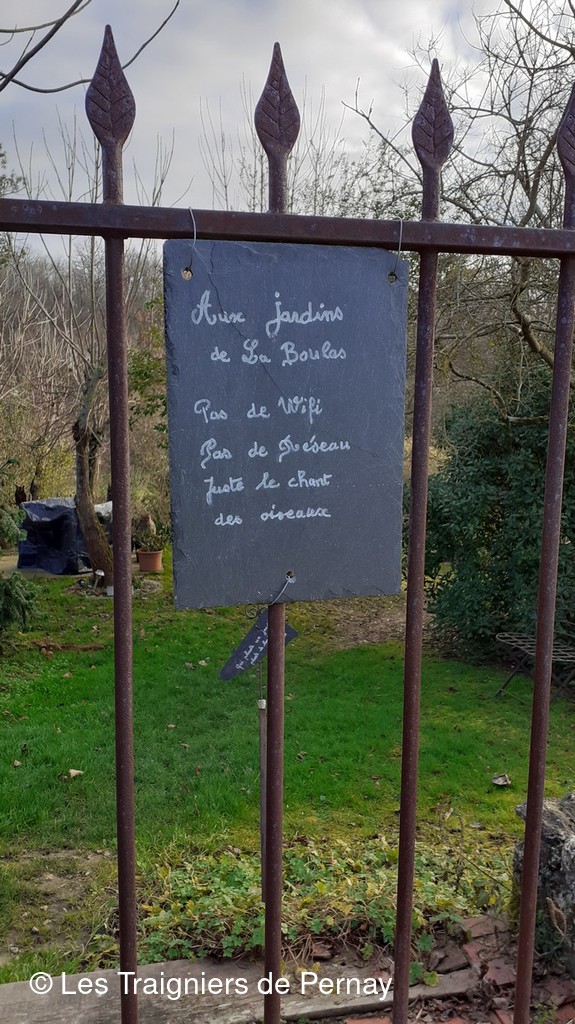 Aux jardins
de La Boulas
Pas de Wifi
Pas de Réseau
Juste le chant
des oiseaux
© Les Traigniers de Pernay